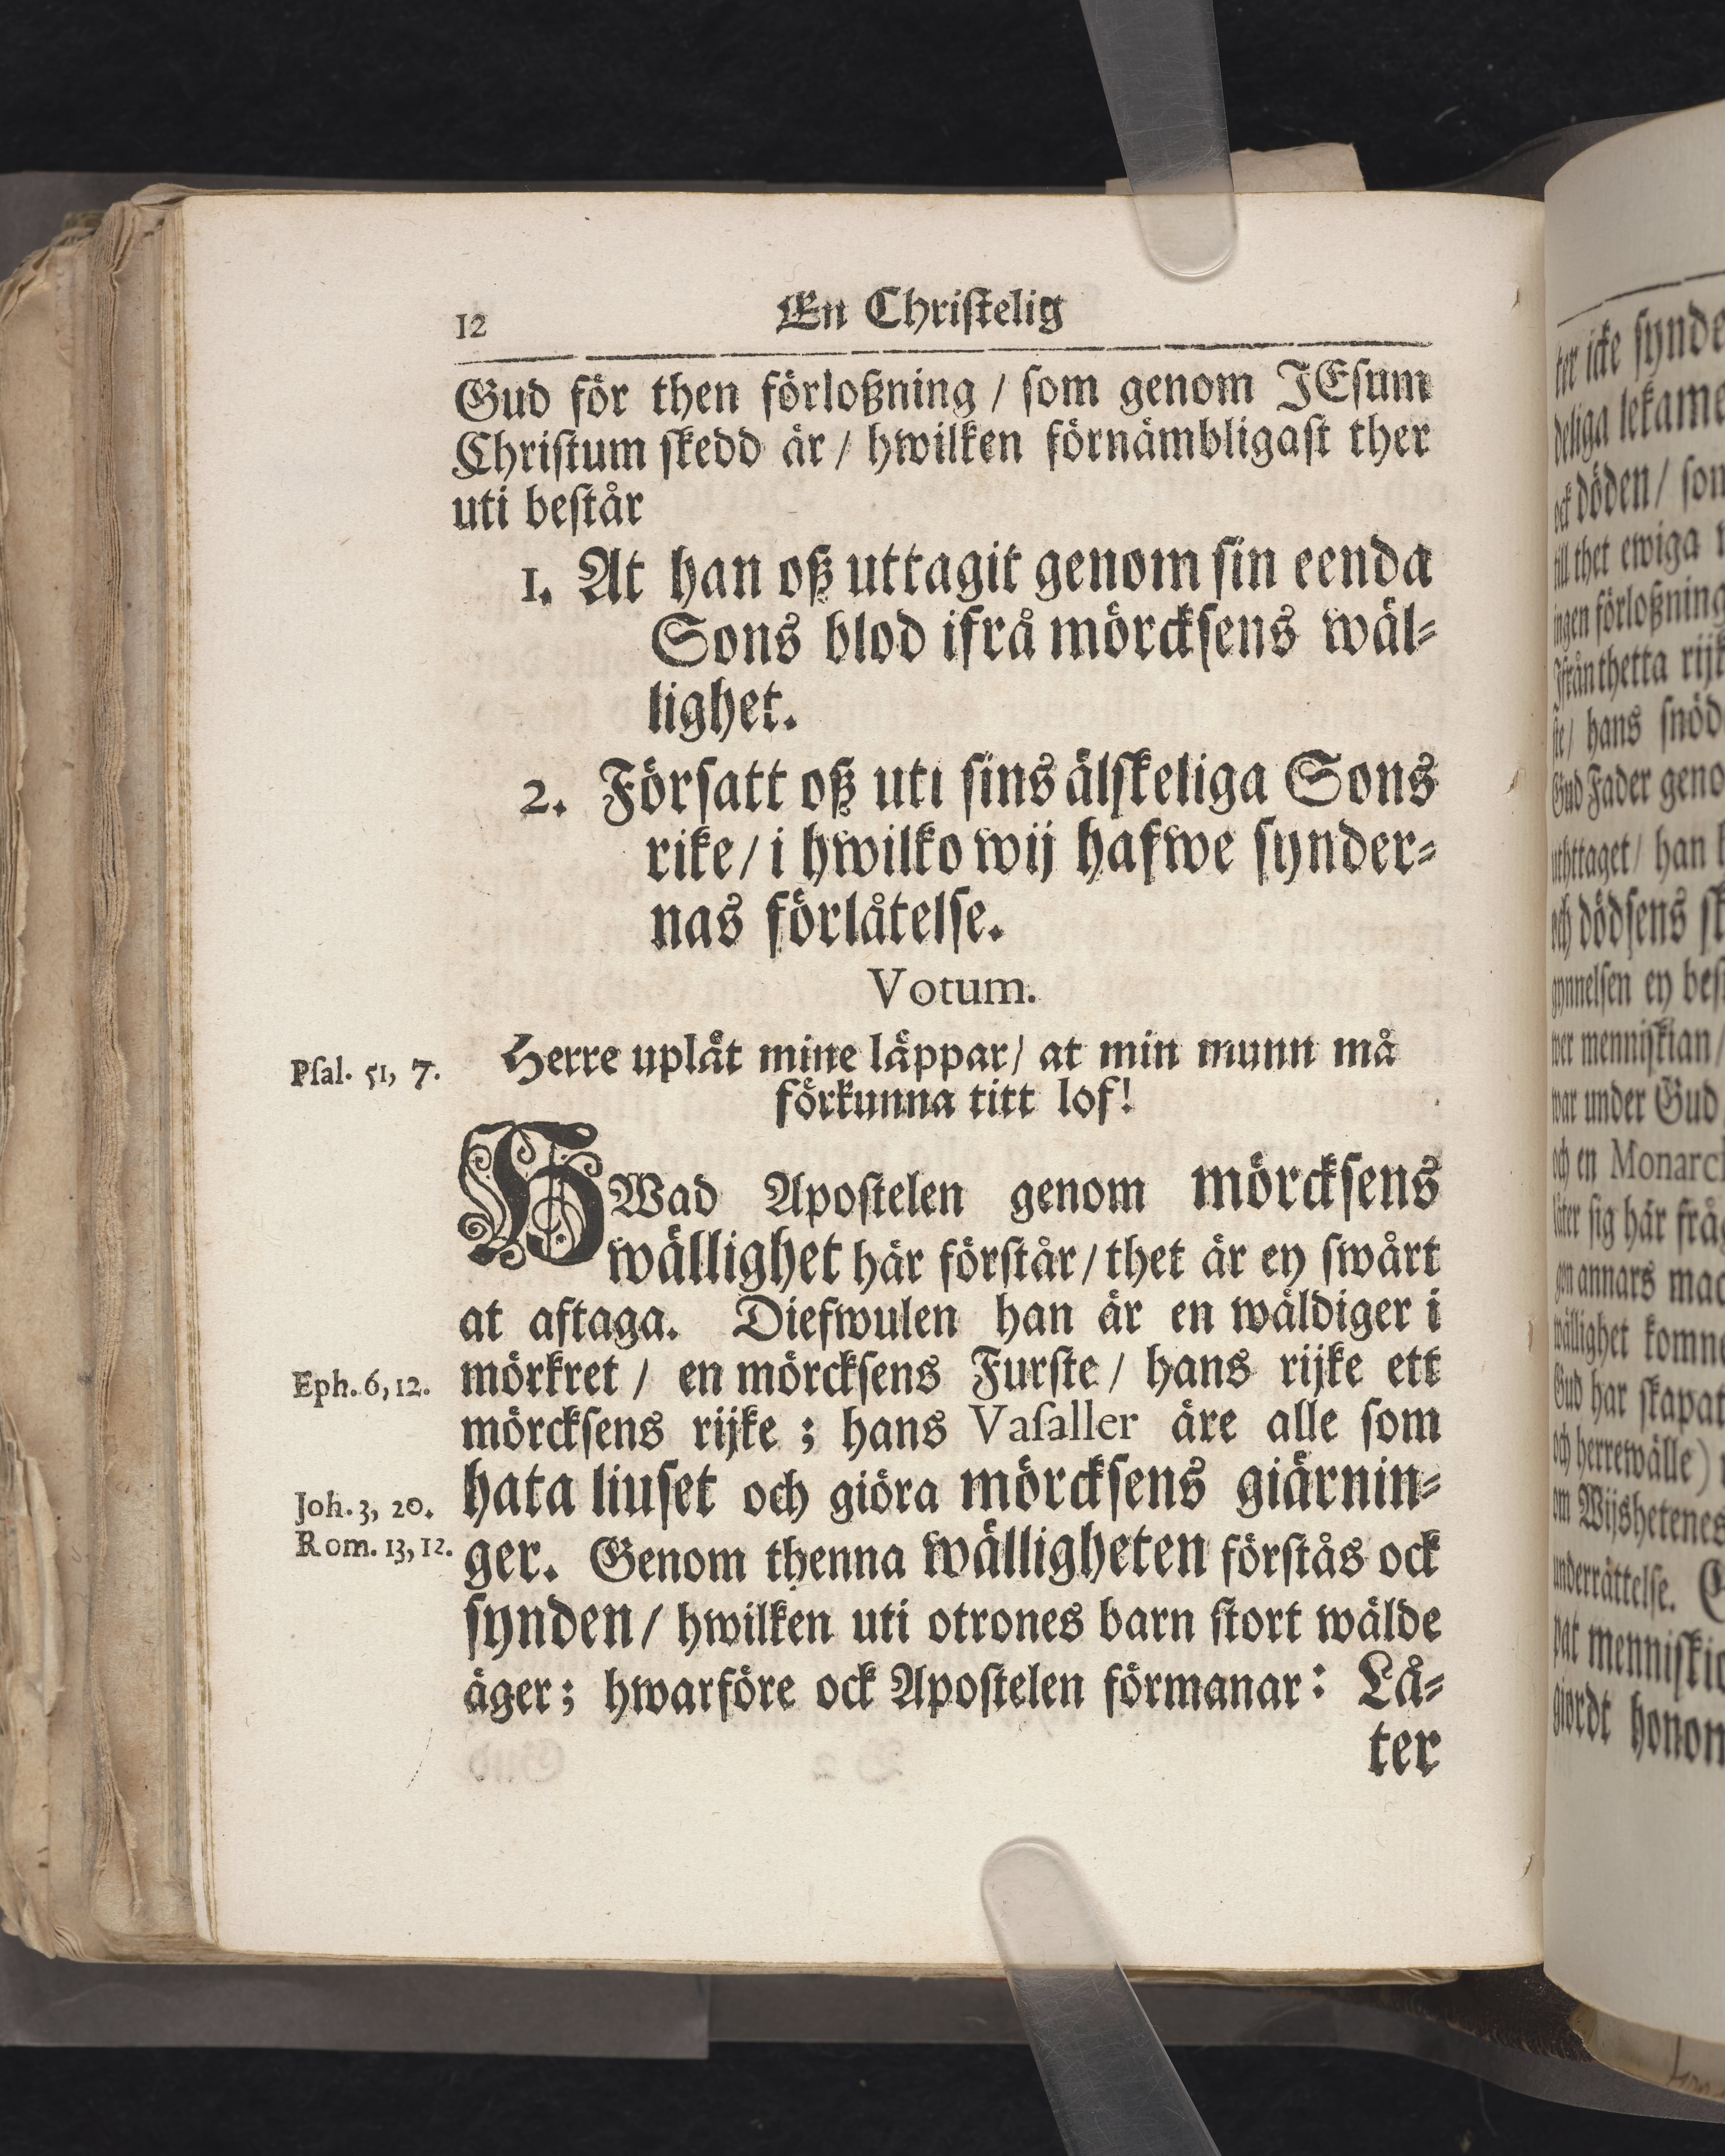 12
En Christelig
Gud för then förloßning / som genom JEsum
Christum skedd är / hwilken förnämbligast ther
uti består
1. At han oß uttagit genom sin eenda
Sons blod ifrå mörcksens wäl-
lighet.
2. Försatt oß uti sins älskeliga Sons
rike / i hwilko wij hafwe synder-
nas förlåtelse.
Votum.
Psal. 51, 7.
Herre uplåt mine läppar / at min munn må
förkunna titt lof!
HWad Apostelen genom mörcksens
wällighet här förstår / thet är ey swårt
at aftaga. Diefwulen han är en wäldiger i
Eph. 6, 12.
mörkret / en mörcksens Furste / hans rijke ett
mörcksens rijke ; hans Vasaller äre alle som
Joh. 3, 20.
hata liuset och giöra mörcksens giärnin-
Rom. 13, 12.
ger. Genom thenna wälligheten förstås ock
synden / hwilken uti otrones barn stort wälde
äger ; hwarföre ock Apostelen förmanar : Lå-
ter
ter icke synde
deliga lekame
ock döden / so
till thet ewiga
ingen förloßning
Ifrån thetta rijk
hans snöd
Gud Fader geno
uthtaget / han
och dödsens
ey bes
menniskian /
war under Gud
och en Monarc
låter sig här frå
annars mac
wällighet komne
Gud har skapat
och herrewälle )
om Wijshetenes
underrättelse.
menniski
giordt honom